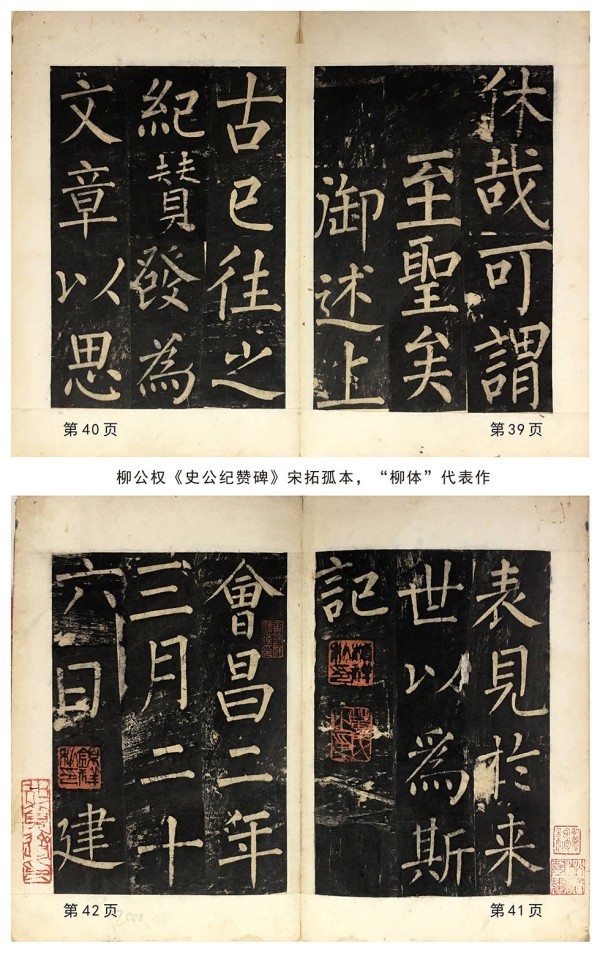 休哉可謂
至聖矣
御述上
第39页
古已往之
紀賛發為
文章以思
第40页
柳公权《史公纪赞碑》宋拓孤本，“柳体”代表作
表見於来
世以為斯
記
第41页
會昌二年
三月二十
六日建
第42页